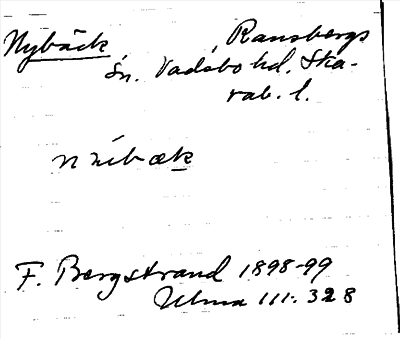 Nybäck, Ransbergs
sn. Vadsbo hd. Ska-
rab. l.
n níbæk
F. Bergstrand 1898-99
Ulma 111:328